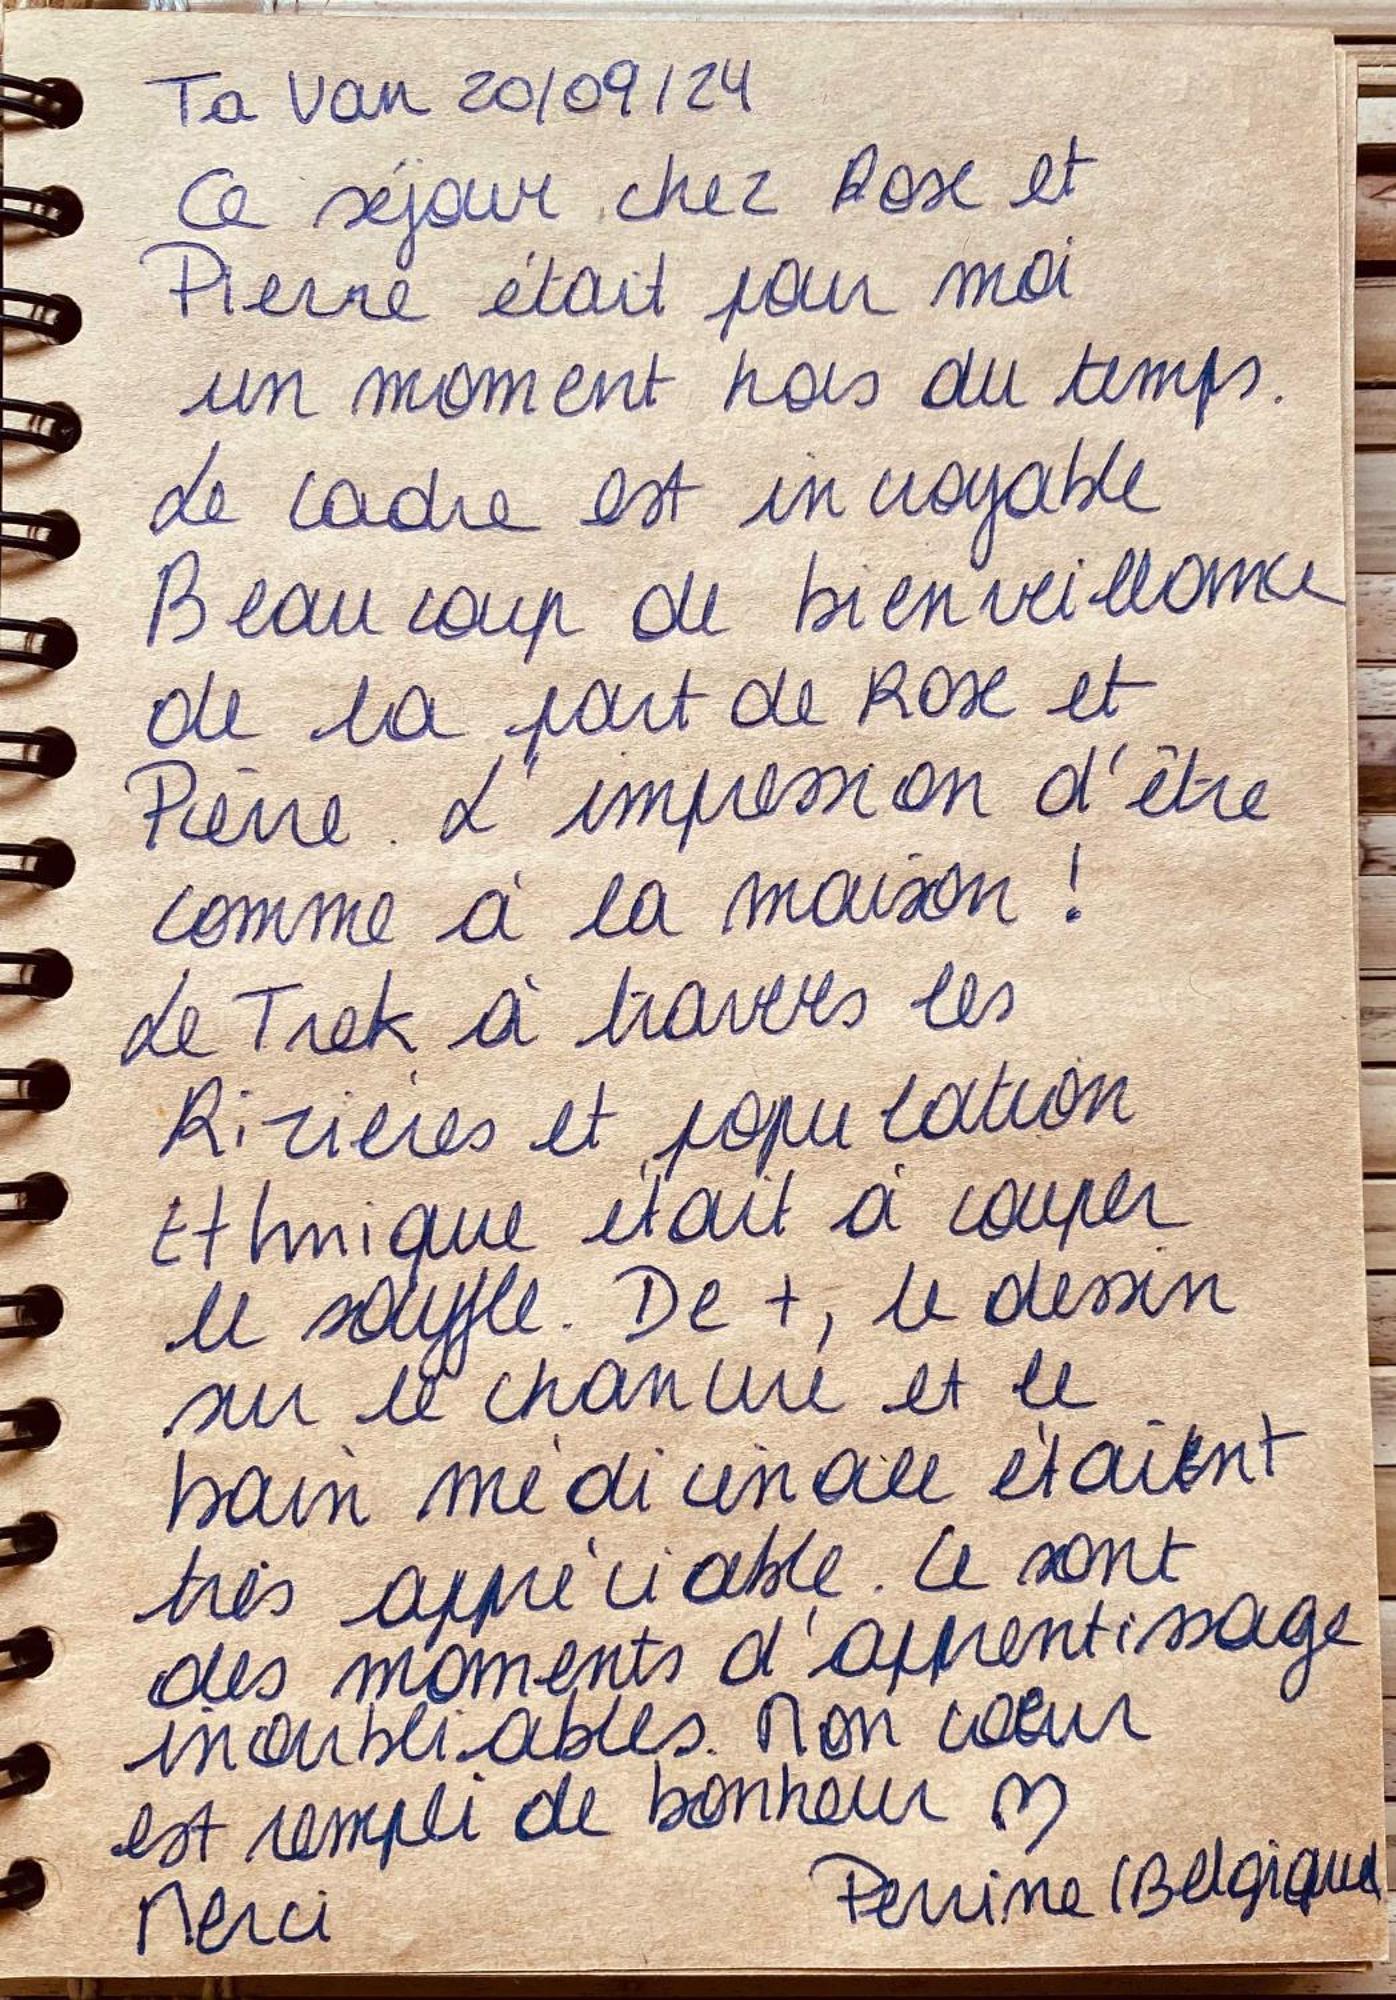 Ta Van 20/09/24
Ce séjour chez Rose et
Pierre était pour moi
un moment hors du temps.
Le cadre est incroyable
Beaucoup de bienveillance
de la part de Rose et
Pierre. L'impression d'être
comme à la maison !
Le Trek à travers les
Rizières et population
Ethnique était à couper
le souffle. De +, le dessin
sur le chanvre et le
bain médicinale étaient
très appréciable. Ce sont
des moments d'apprentissage
inoubliables. Mon cœur
est rempli de bonheur ♡
Merci Perrine (Belgique)